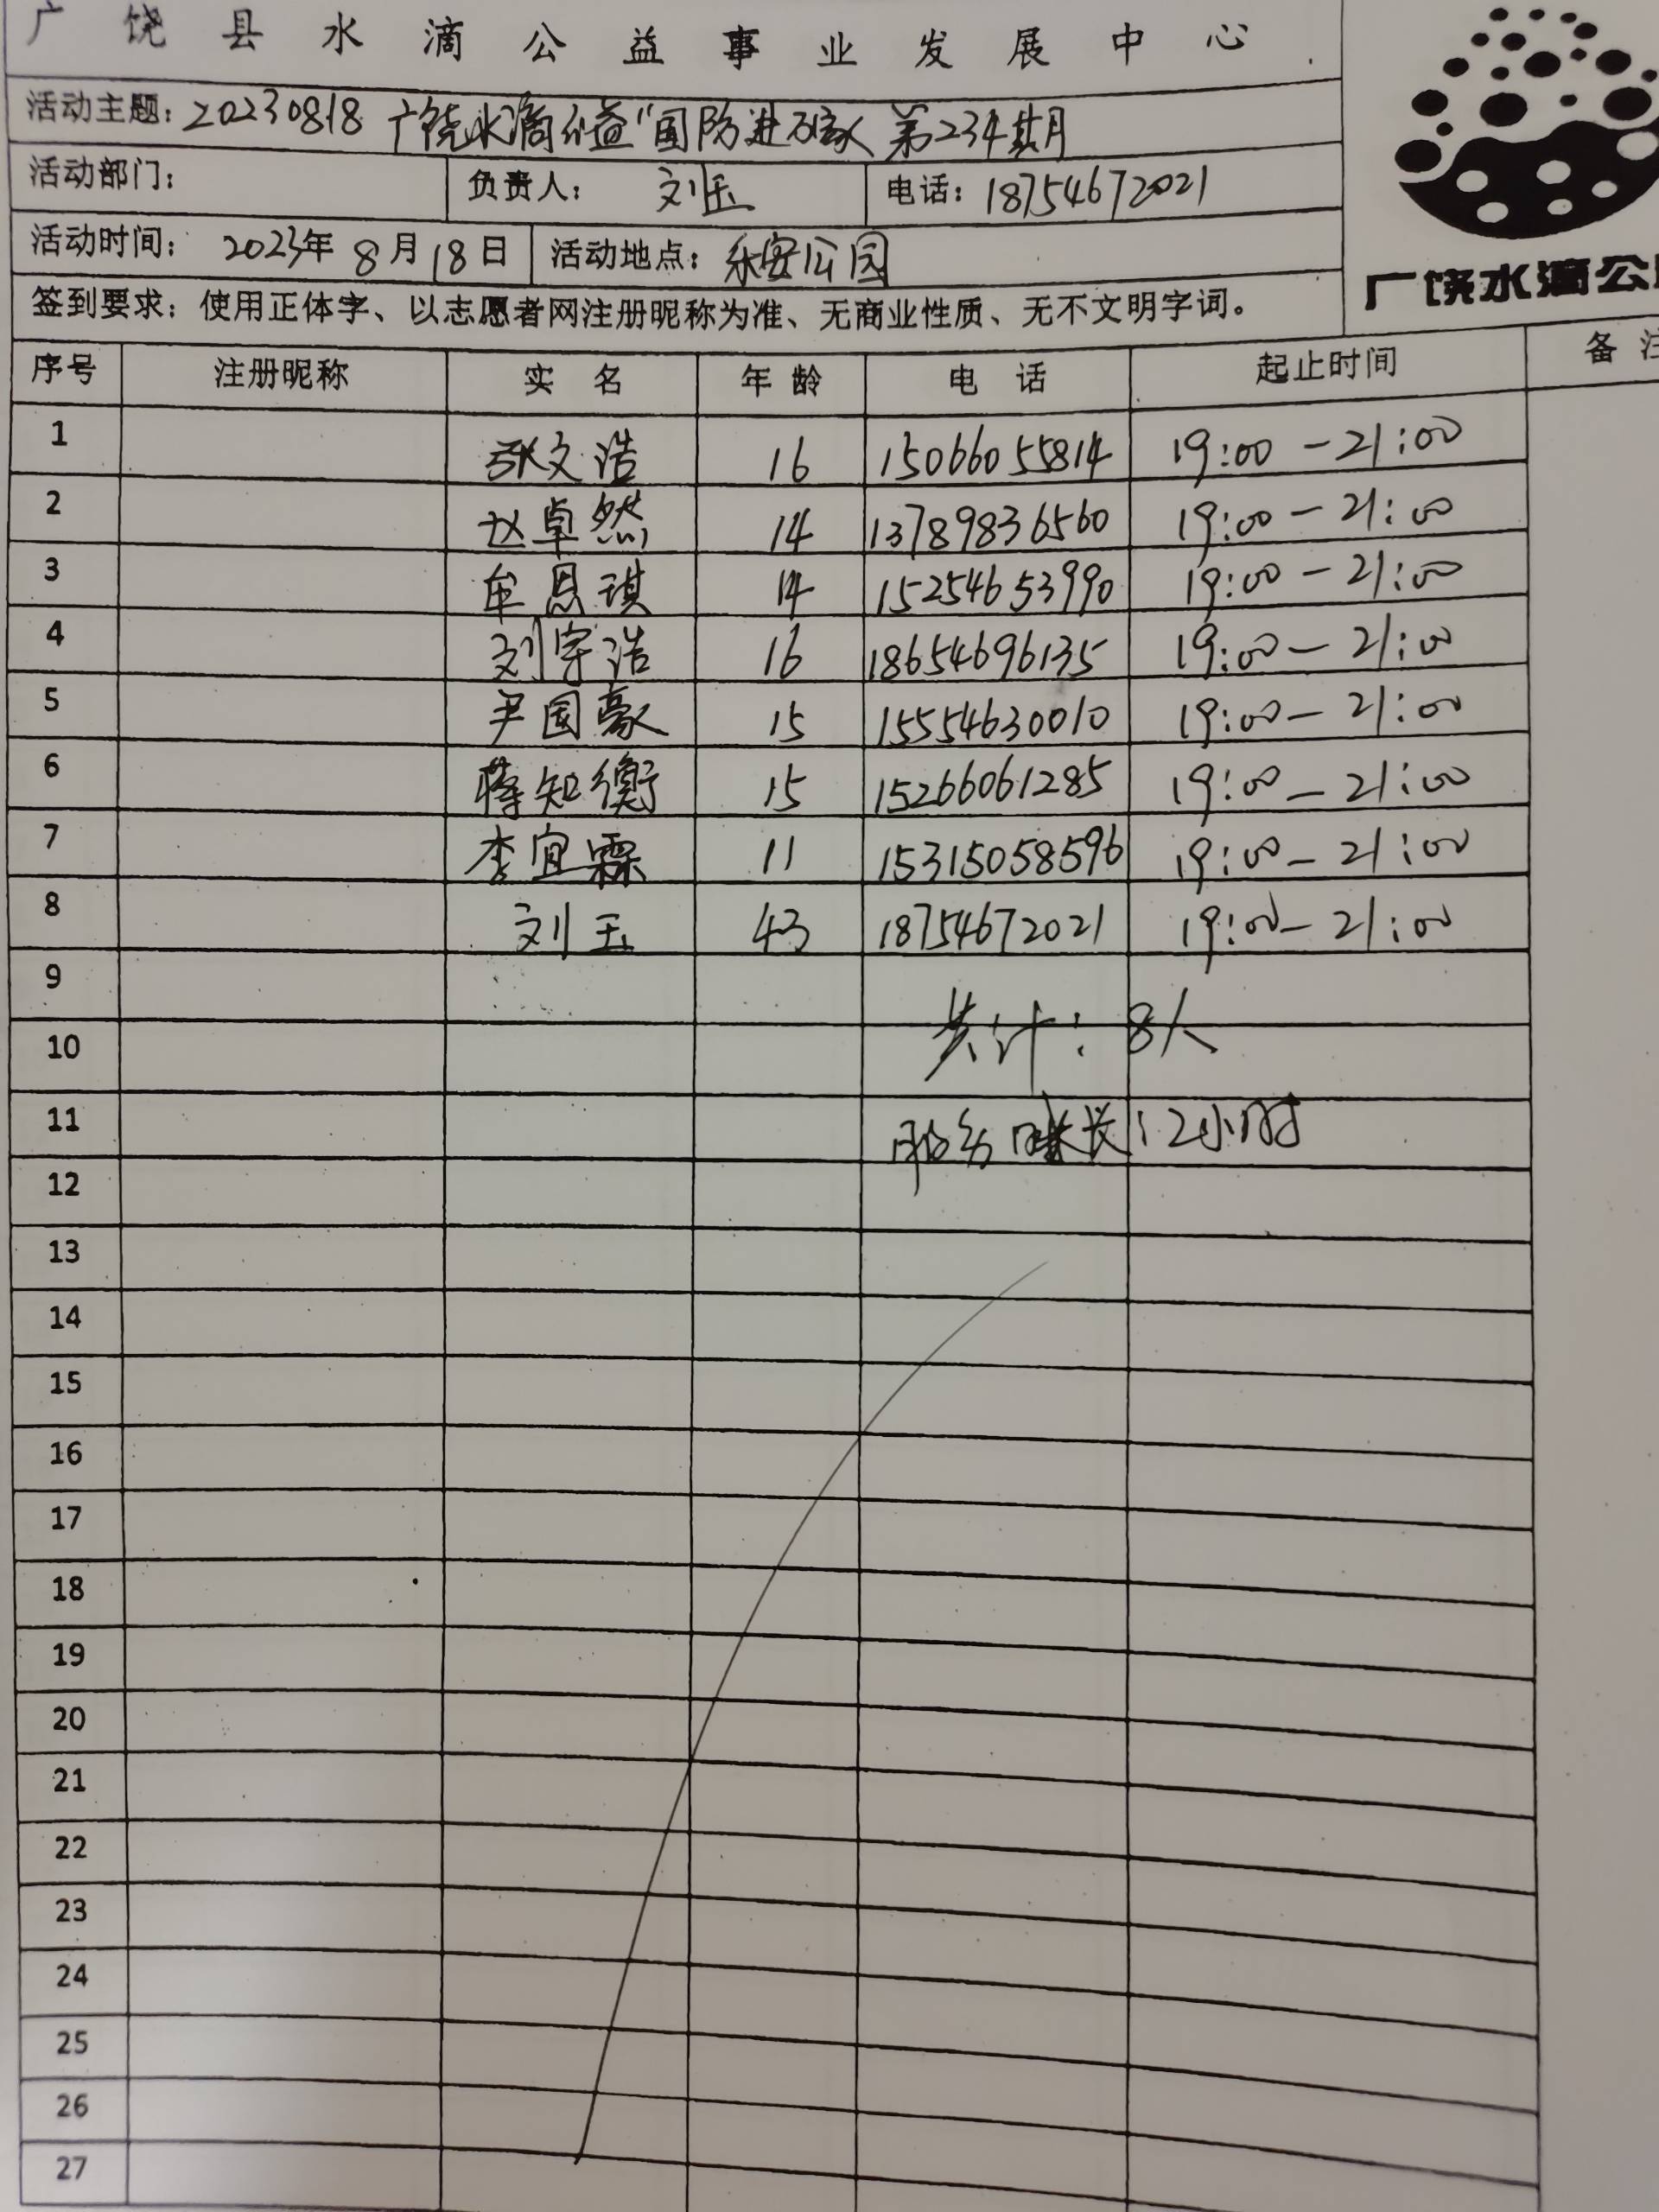 广饶县水滴公益事业发展中心
活动主题：20230818 广饶水滴公益“国防进万家 第234期
活动部门： 负责人：刘玉 电话：18754672021
活动时间：2023年8月18日 活动地点：乐安公园
广饶水滴公
签到要求：使用正体字、以志愿者网注册昵称为准、无商业性质、无不文明字词。
序号 注册昵称 实名 年龄 电话 起止时间 备注
1 张文浩 16 15066055814 19:00-21:00
2 赵卓然 14 13789836560 19:00-21:00
3 牟恩琪 14 15254653990 19:00-21:00
4 刘宇浩 16 18654696135 19:00-21:00
5 尹国豪 15 15554630010 19:00-21:00
6 蒋知衡 15 15266061285 19:00-21:00
7 李宜霖 11 15315058596 19:00-21:00
8 刘玉 43 18754672021 19:00-21:00
9
共计：8人
10
11 服务时长：2小时
12
13
14
15
16
17
18
19
20
21
22
23
24
25
26
27